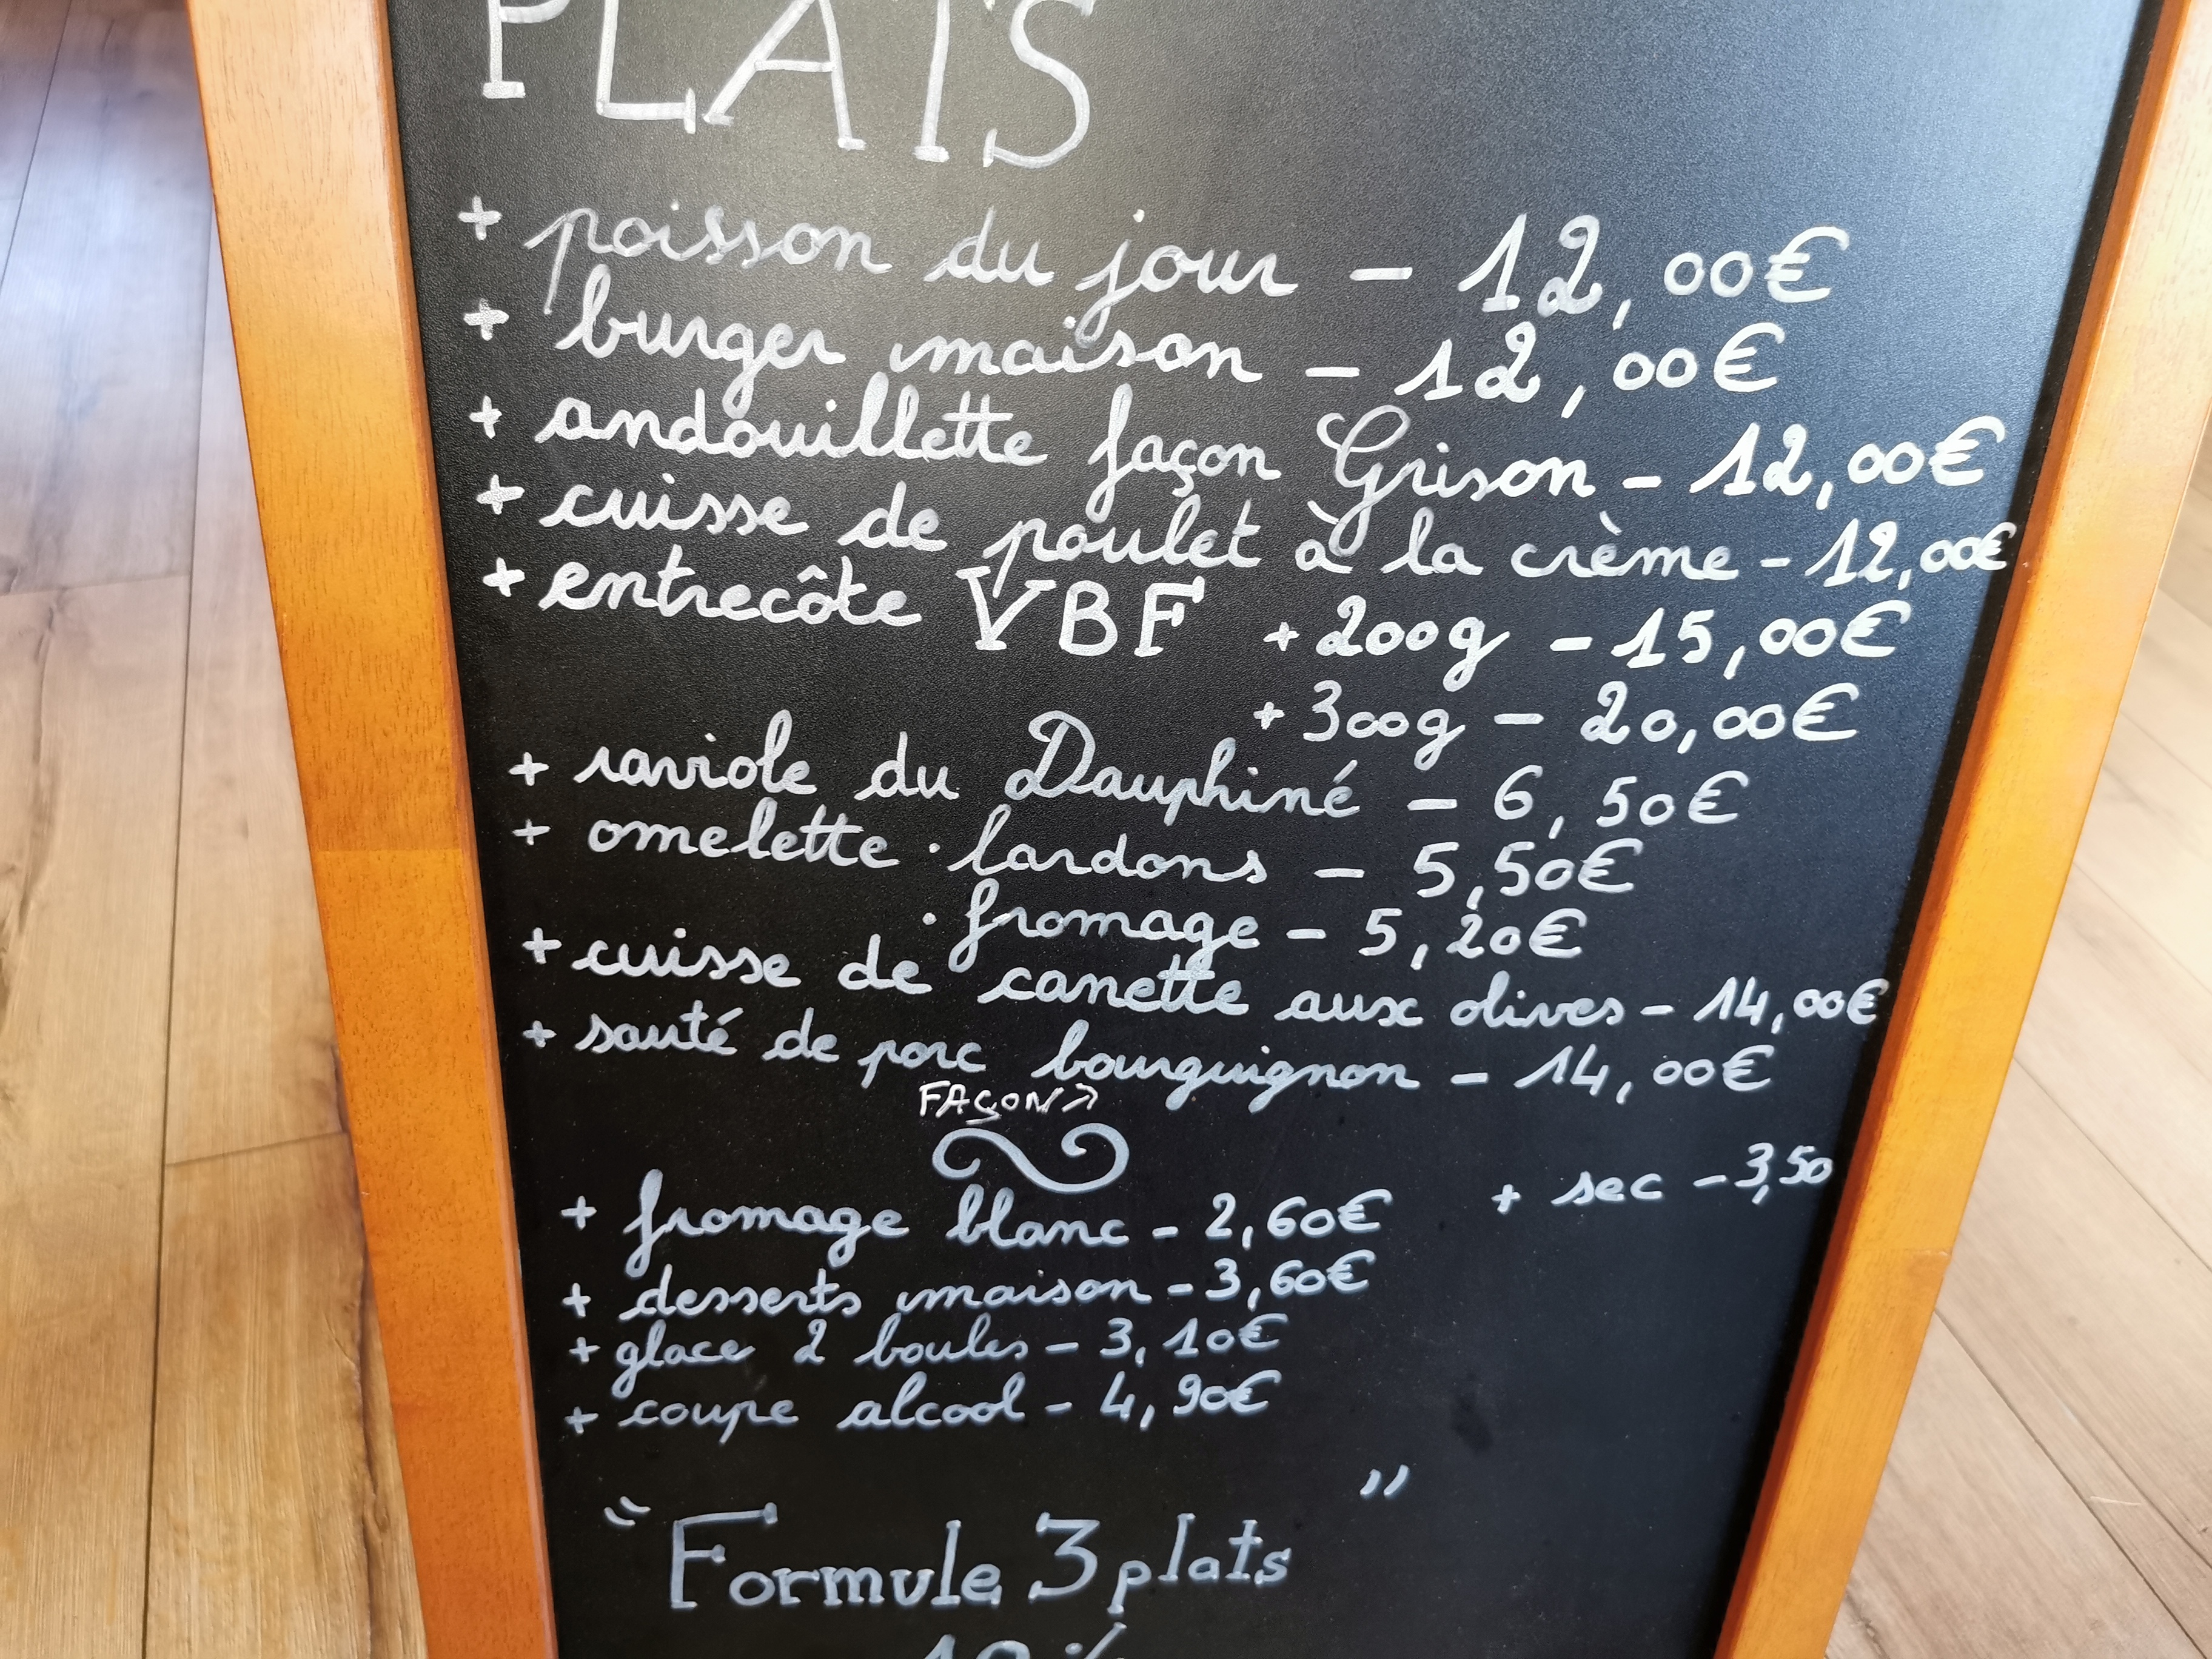 PLATS
+ poisson du jour - 12,00€
+ burger maison - 12,00€
+ andouillette façon Grison - 12,00€
+ cuisse de poulet à la crème - 12,00€
+ entrecôte VBF +200g - 15,00€
+300g - 20,00€
+ raviole du Dauphiné - 6,50€
+ omelette · lardons - 5,50€
· fromage - 5,20€
+ cuisse de canette aux olives - 14,00€
+ sauté de porc bourguignon - 14,00€
FAÇON↗
+ fromage blanc - 2,60€ + sec - 3,50
+ desserts maison - 3,60€
+ glace 2 boules - 3,10€
+ coupe alcool - 4,90€
"Formule 3 plats"